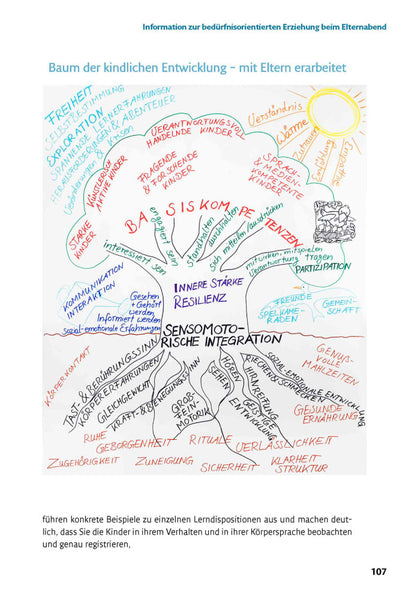 Information zur bedürfnisorientierten Erziehung beim Elternabend
Baum der kindlichen Entwicklung – mit Eltern erarbeitet
FREIHEIT
SELBSTBESTIMMUNG
EXPLORATION
SPANNENDE LERNERFAHRUNGEN
HERAUSFORDERUNGEN & ABENTEUER
KÜNSTLERISCH
AKTIVE KINDER
STARKE
KINDER
VERANTWORTUNGSVOLL
HANDELNDE KINDER
FRAGENDE
& FORSCHENDE
KINDER
SPRACH-
& MEDIEN-
KOMPETENTE
KINDER
Verständnis
Wärme
Zutrauen
BASISKOMPETENZEN
interessiert sein
engagiert sein
Standhalten
durchhalten
sich mitteilen/ausdrücken
mitwirken, mitspielen
Verantwortung tragen
PARTIZIPATION
KOMMUNIKATION
INTERAKTION
Gesehen
+ Gehört
werden
Informiert werden
sozial-emotionale Erfahrungen
INNERE STÄRKE
RESILIENZ
FREUNDE
SPIELKAME-
RADEN
GEMEIN-
SCHAFT
SENSOMOTO-
RISCHE INTEGRATION
KÖRPERKONTAKT
TAST- & BERÜHRUNGSSINN
KÖRPERERFAHRUNGEN
GLEICHGEWICHT
KRAFT- & BEWEGUNGSSINN
GROß-
FEIN-
MOTORIK
SEHEN
HÖREN
HIRNREIFUNG
GEISTIGE
ENTWICKLUNG
RIECHEN & SCHMECKEN
SOZIAL-EMOTIONALE ENTWICKLUNG
GENUß-
VOLLE
MAHLZEITEN
GESUNDE
ERNÄHRUNG
RUHE
GEBORGENHEIT
RITUALE
VERLÄSSLICHKEIT
ZUGEHÖRIGKEIT
ZUNEIGUNG
SICHERHEIT
KLARHEIT
STRUKTUR
führen konkrete Beispiele zu einzelnen Lerndispositionen aus und machen deut-
lich, dass Sie die Kinder in ihrem Verhalten und in ihrer Körpersprache beobachten
und genau registrieren.
107